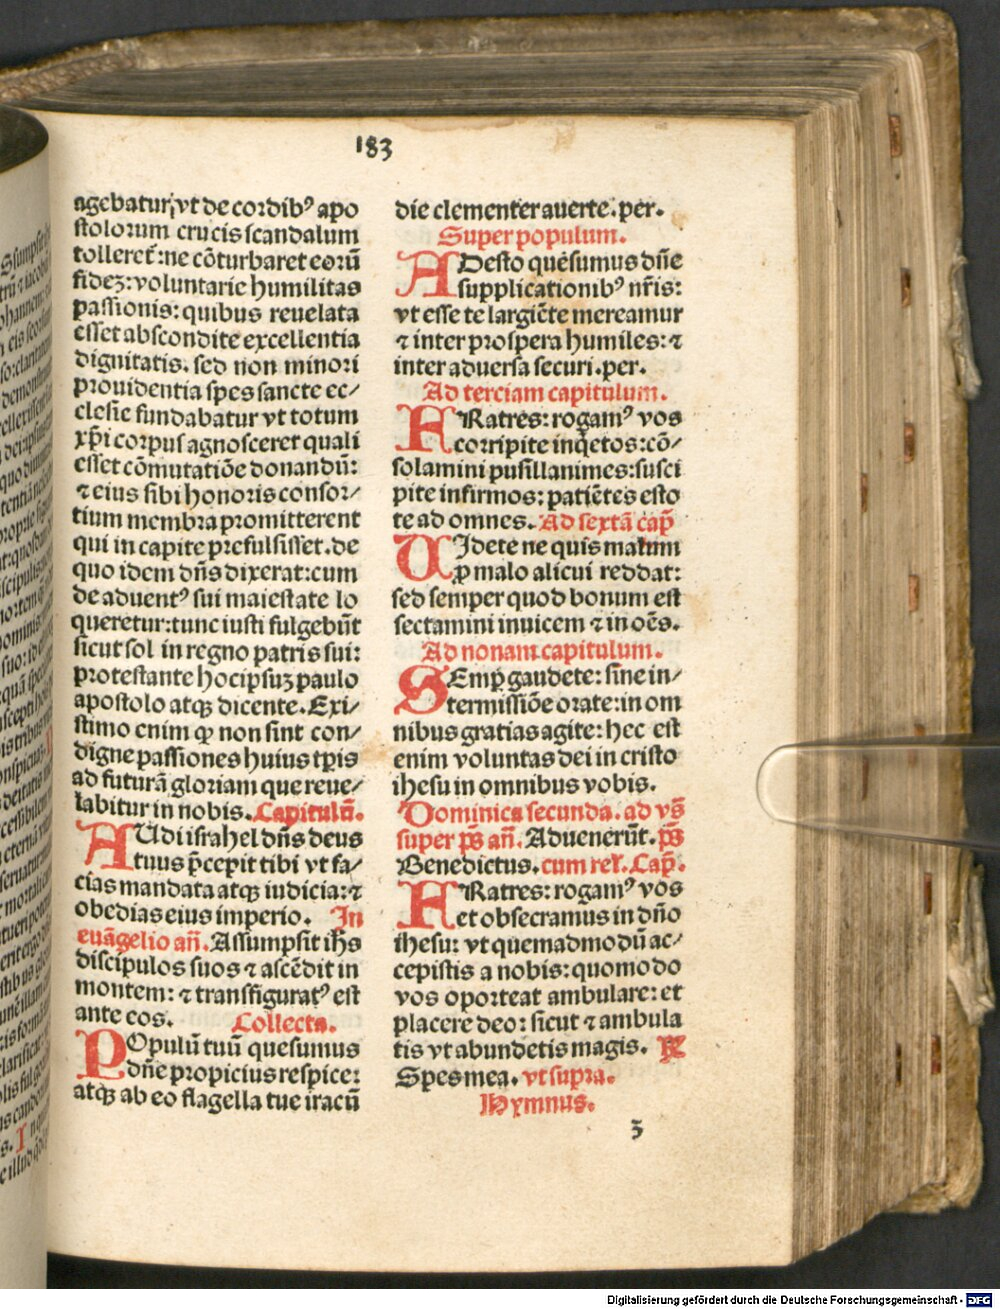 183
agebatur, vt de cordibꝰ apo
stolorum crucis scandalum
tolleret̄: ne cōturbaret eorū
fideʒ: voluntarie humilitas
passionis: quibus reuelata
esset abscondite excellentia
dignitatis. sed non minori
prouidentia spes sancte ec⸗
clesie fundabatur vt totum
xp̄i corpus agnosceret quali
esset cōmutatiōe donandū:
⁊ eius sibi honoris consor⸗
tium membra promitterent
qui in capite prefulsisset. de
quo idem dn̄s dixerat: cum
de aduentꝰ sui maiestate lo
queretur: tunc iusti fulgebūt
sicut sol in regno patris sui:
protestante hoc ipsuʒ paulo
apostolo atqʒ dicente. Exi⸗
stimo enim ꝙ non sint con⸗
digne passiones huius tp̄is
ad futurā gloriam que reue⸗
labitur in nobis. Capitulū.
AUdi israhel dn̄s deus
tuus p̄cepit tibi vt fa⸗
cias mandata atqʒ iudicia: ⁊
obedias eius imperio. In
euāgelio an̄. Assumpsit ih̄s
discipulos suos ⁊ ascēdit in
montem: ⁊ transfiguratꝰ est
ante eos. Collecta.
POpulū tuū quesumus
dn̄e propicius respice:
atqʒ ab eo flagella tue iracū
die clementer auerte. per.
Super populum.
ADesto quesumus dn̄e
supplicationibꝰ nr̄is:
vt esse te largiēte mereamur
⁊ inter prospera humiles: ⁊
inter aduersa securi. per.
Ad terciam capitulum.
FRatres: rogamꝰ vos
corripite inq̇etos: cō⸗
solamini pusillanimes: susci
pite infirmos: patiētes esto
te ad omnes. Ad sextā cap̄
UIdete ne quis malum
ꝓ malo alicui reddat:
sed semper quod bonum est
sectamini inuicem ⁊ in oēs.
Ad nonam capitulum.
SEmꝑ gaudete: sine in⸗
termissiōe orate: in om
nibus gratias agite: hec est
enim voluntas dei in cristo
ihesu in omnibus vobis.
Dominica secunda. ad vs̄
super ps̄ an̄. Aduenerūt. ps̄
Benedictus. cum rel'. Cap̄.
FRatres: rogamꝰ vos
et obsecramus in dn̄o
ihesu: vt quemadmodū ac⸗
cepistis a nobis: quomodo
vos oporteat ambulare: et
placere deo: sicut ⁊ ambula
tis vt abundetis magis. ℞
Spes mea. vt supra.
Hymnus.
ʒ
Digitalisierung gefördert durch die Deutsche Forschungsgemeinschaft - DFG